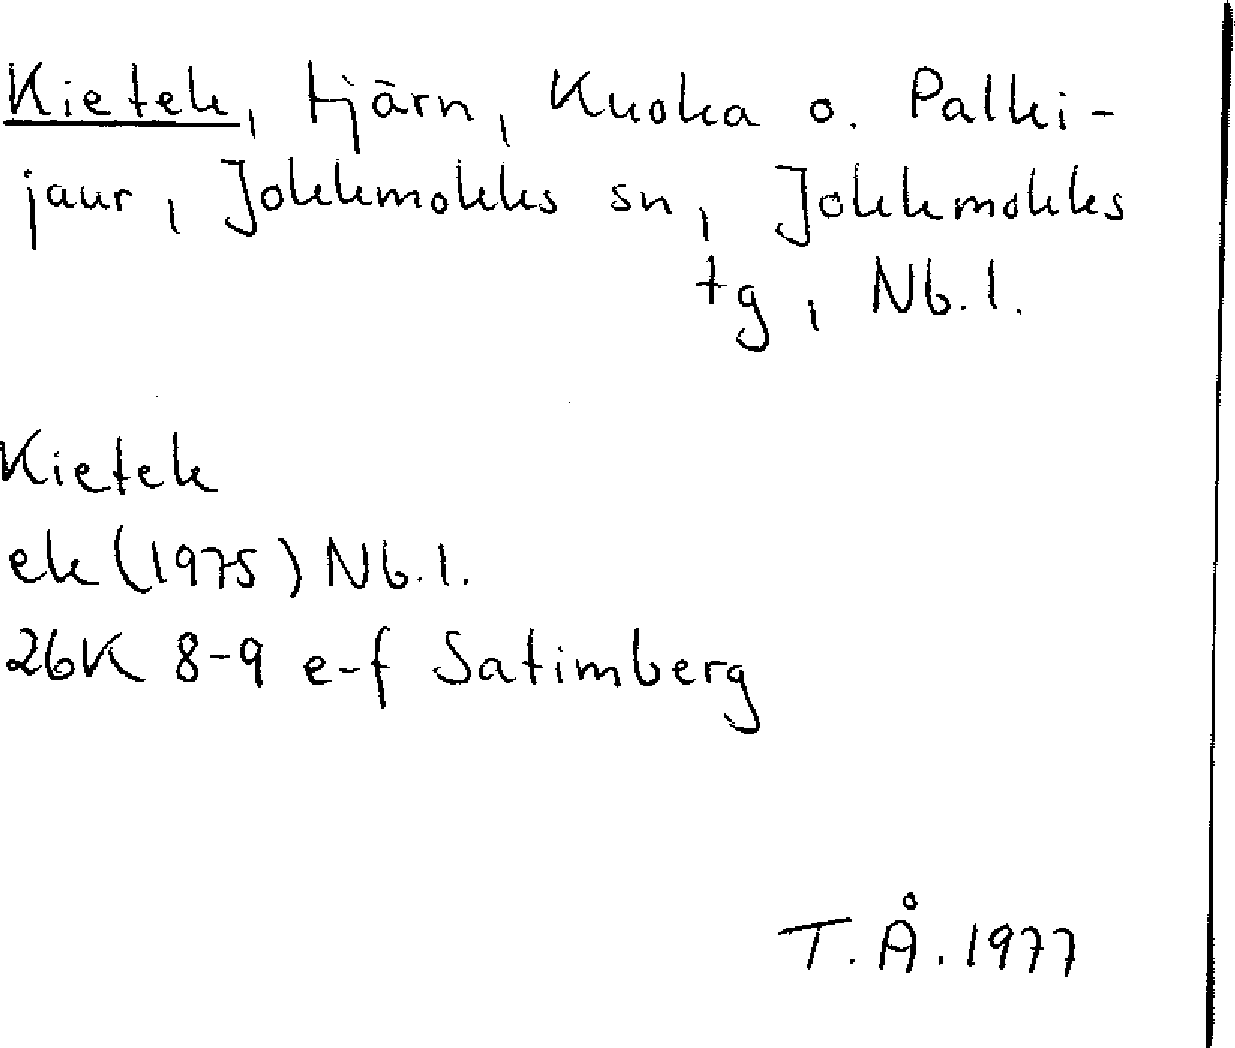 Kietek, tjärn, Kuoka o. Palki-
jaur, Jokkmokks sn, Jokkmokks
tg, Nb.l.
Kietek
ek (1975) Nb.l.
26K 8-9 e-f Satimberg
T.Å. 1977